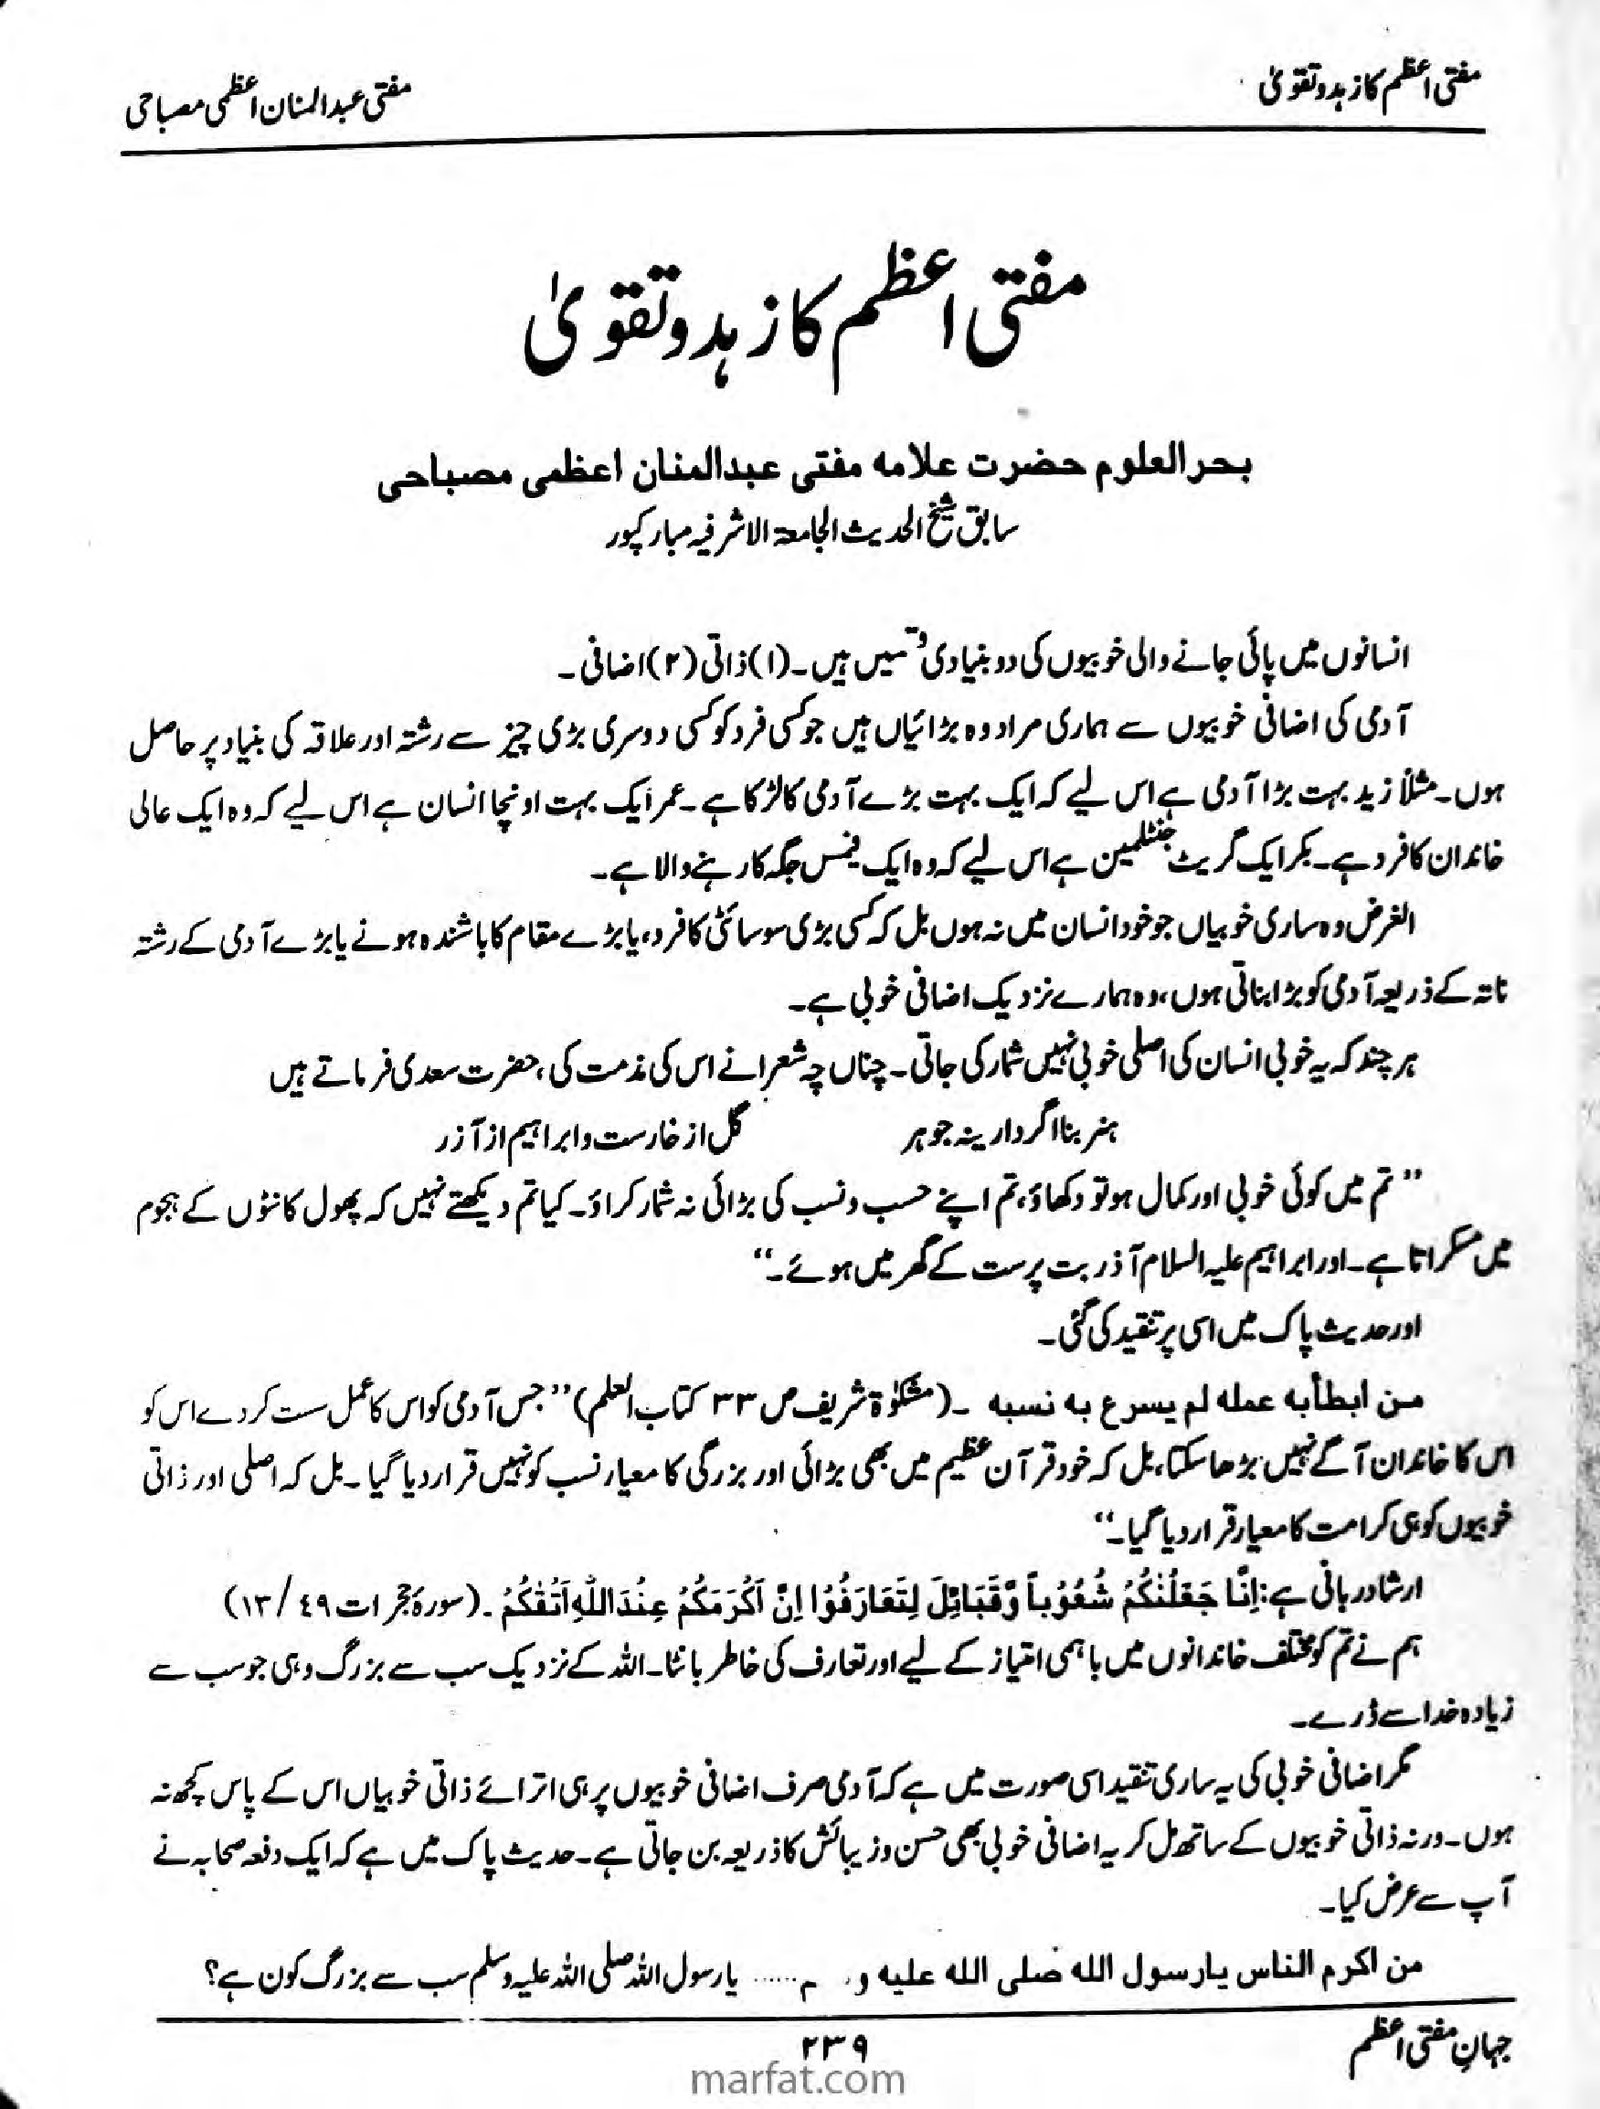 مفتی اعظم کا زہد و تقویٰ
مفتی عبدالمنان اعظمی مصباحی
مفتی اعظم کا زہد و تقویٰ
بحر العلوم حضرت علامہ مفتی عبدالمنان اعظمی مصباحی
سابق شیخ الحدیث الجامعۃ الاشرفیہ مبارکپور
انسانوں میں پائی جانے والی خوبیوں کی دو بنیادی قسمیں ہیں۔ (۱) ذاتی (۲) اضافی۔
آدمی کی اضافی خوبیوں سے ہماری مراد وہ بڑائیاں ہیں جو کسی فرد کو کسی دوسری بڑی چیز سے رشتہ اور علاقہ کی بنیاد پر حاصل
ہوں۔ مثلاً زید بہت بڑا آدمی ہے اس لیے کہ ایک بہت بڑے آدمی کا لڑکا ہے۔ عمر ایک بہت اونچا انسان ہے اس لیے کہ وہ ایک عالی
خاندان کا فرد ہے۔ بکر ایک گریٹ جنٹلمین ہے اس لیے کہ وہ ایک فیمس جگہ کا رہنے والا ہے۔
الغرض وہ ساری خوبیاں جو خود انسان میں نہ ہوں بل کہ کسی بڑی سوسائٹی کا فرد، یا بڑے مقام کا باشندہ ہونے یا بڑے آدمی کے رشتہ
ناتہ کے ذریعہ آدمی کو بڑا بناتی ہوں، وہ ہمارے نزدیک اضافی خوبی ہے۔
ہر چند کہ یہ خوبی انسان کی اصلی خوبی نہیں شمار کی جاتی۔ چناں چہ شعرا نے اس کی مذمت کی، حضرت سعدی فرماتے ہیں
ہنر بنما اگر داری نہ جوہر گل از خارست و ابراہیم از آزر
”تم میں کوئی خوبی اور کمال ہو تو دکھاؤ، تم اپنے حسب و نسب کی بڑائی نہ شمار کراؤ۔ کیا تم دیکھتے نہیں کہ پھول کانٹوں کے ہجوم
میں مسکراتا ہے۔ اور ابراہیم علیہ السلام آذر بت پرست کے گھر میں ہوئے۔“
اور حدیث پاک میں اسی پر تنقید کی گئی۔
من ابطأبه عمله لم يسرع به نسبه ۔ (مشکوٰۃ شریف ص ۳۳ کتاب العلم) ”جس آدمی کو اس کا عمل ست کر دے اس کو
اس کا خاندان آگے نہیں بڑھا سکتا، بل کہ خود قرآن عظیم میں بھی بڑائی اور بزرگی کا معیار نسب کو نہیں قرار دیا گیا۔ بل کہ اصلی اور ذاتی
خوبیوں کو ہی کرامت کا معیار قرار دیا گیا۔“
ارشاد ربانی ہے: اِنَّا جَعَلْنٰكُمْ شُعُوْباً وَّقَبَائِلَ لِتَعَارَفُوْا اِنَّ اَكْرَمَكُمْ عِنْدَ اللّٰهِ اَتْقٰكُمْ ۔ (سورۂ حجرات ۴۹/ ۱۳)
ہم نے تم کو مختلف خاندانوں میں باہمی امتیاز کے لیے اور تعارف کی خاطر بانٹا۔ اللہ کے نزدیک سب سے بزرگ وہی جو سب سے
زیادہ خدا سے ڈرے۔
مگر اضافی خوبی کی یہ ساری تنقید اسی صورت میں ہے کہ آدمی صرف اضافی خوبیوں پر ہی اترائے ذاتی خوبیاں اس کے پاس کچھ نہ
ہوں۔ ورنہ ذاتی خوبیوں کے ساتھ مل کر یہ اضافی خوبی بھی حسن و زیبائش کا ذریعہ بن جاتی ہے۔ حدیث پاک میں ہے کہ ایک دفعہ صحابہ نے
آپ سے عرض کیا۔
من اكرم الناس يا رسول الله صلى الله عليه و م...... یا رسول اللہ صلی اللہ علیہ وسلم سب سے بزرگ کون ہے؟
جہانِ مفتی اعظم
۲۳۹
marfat.com